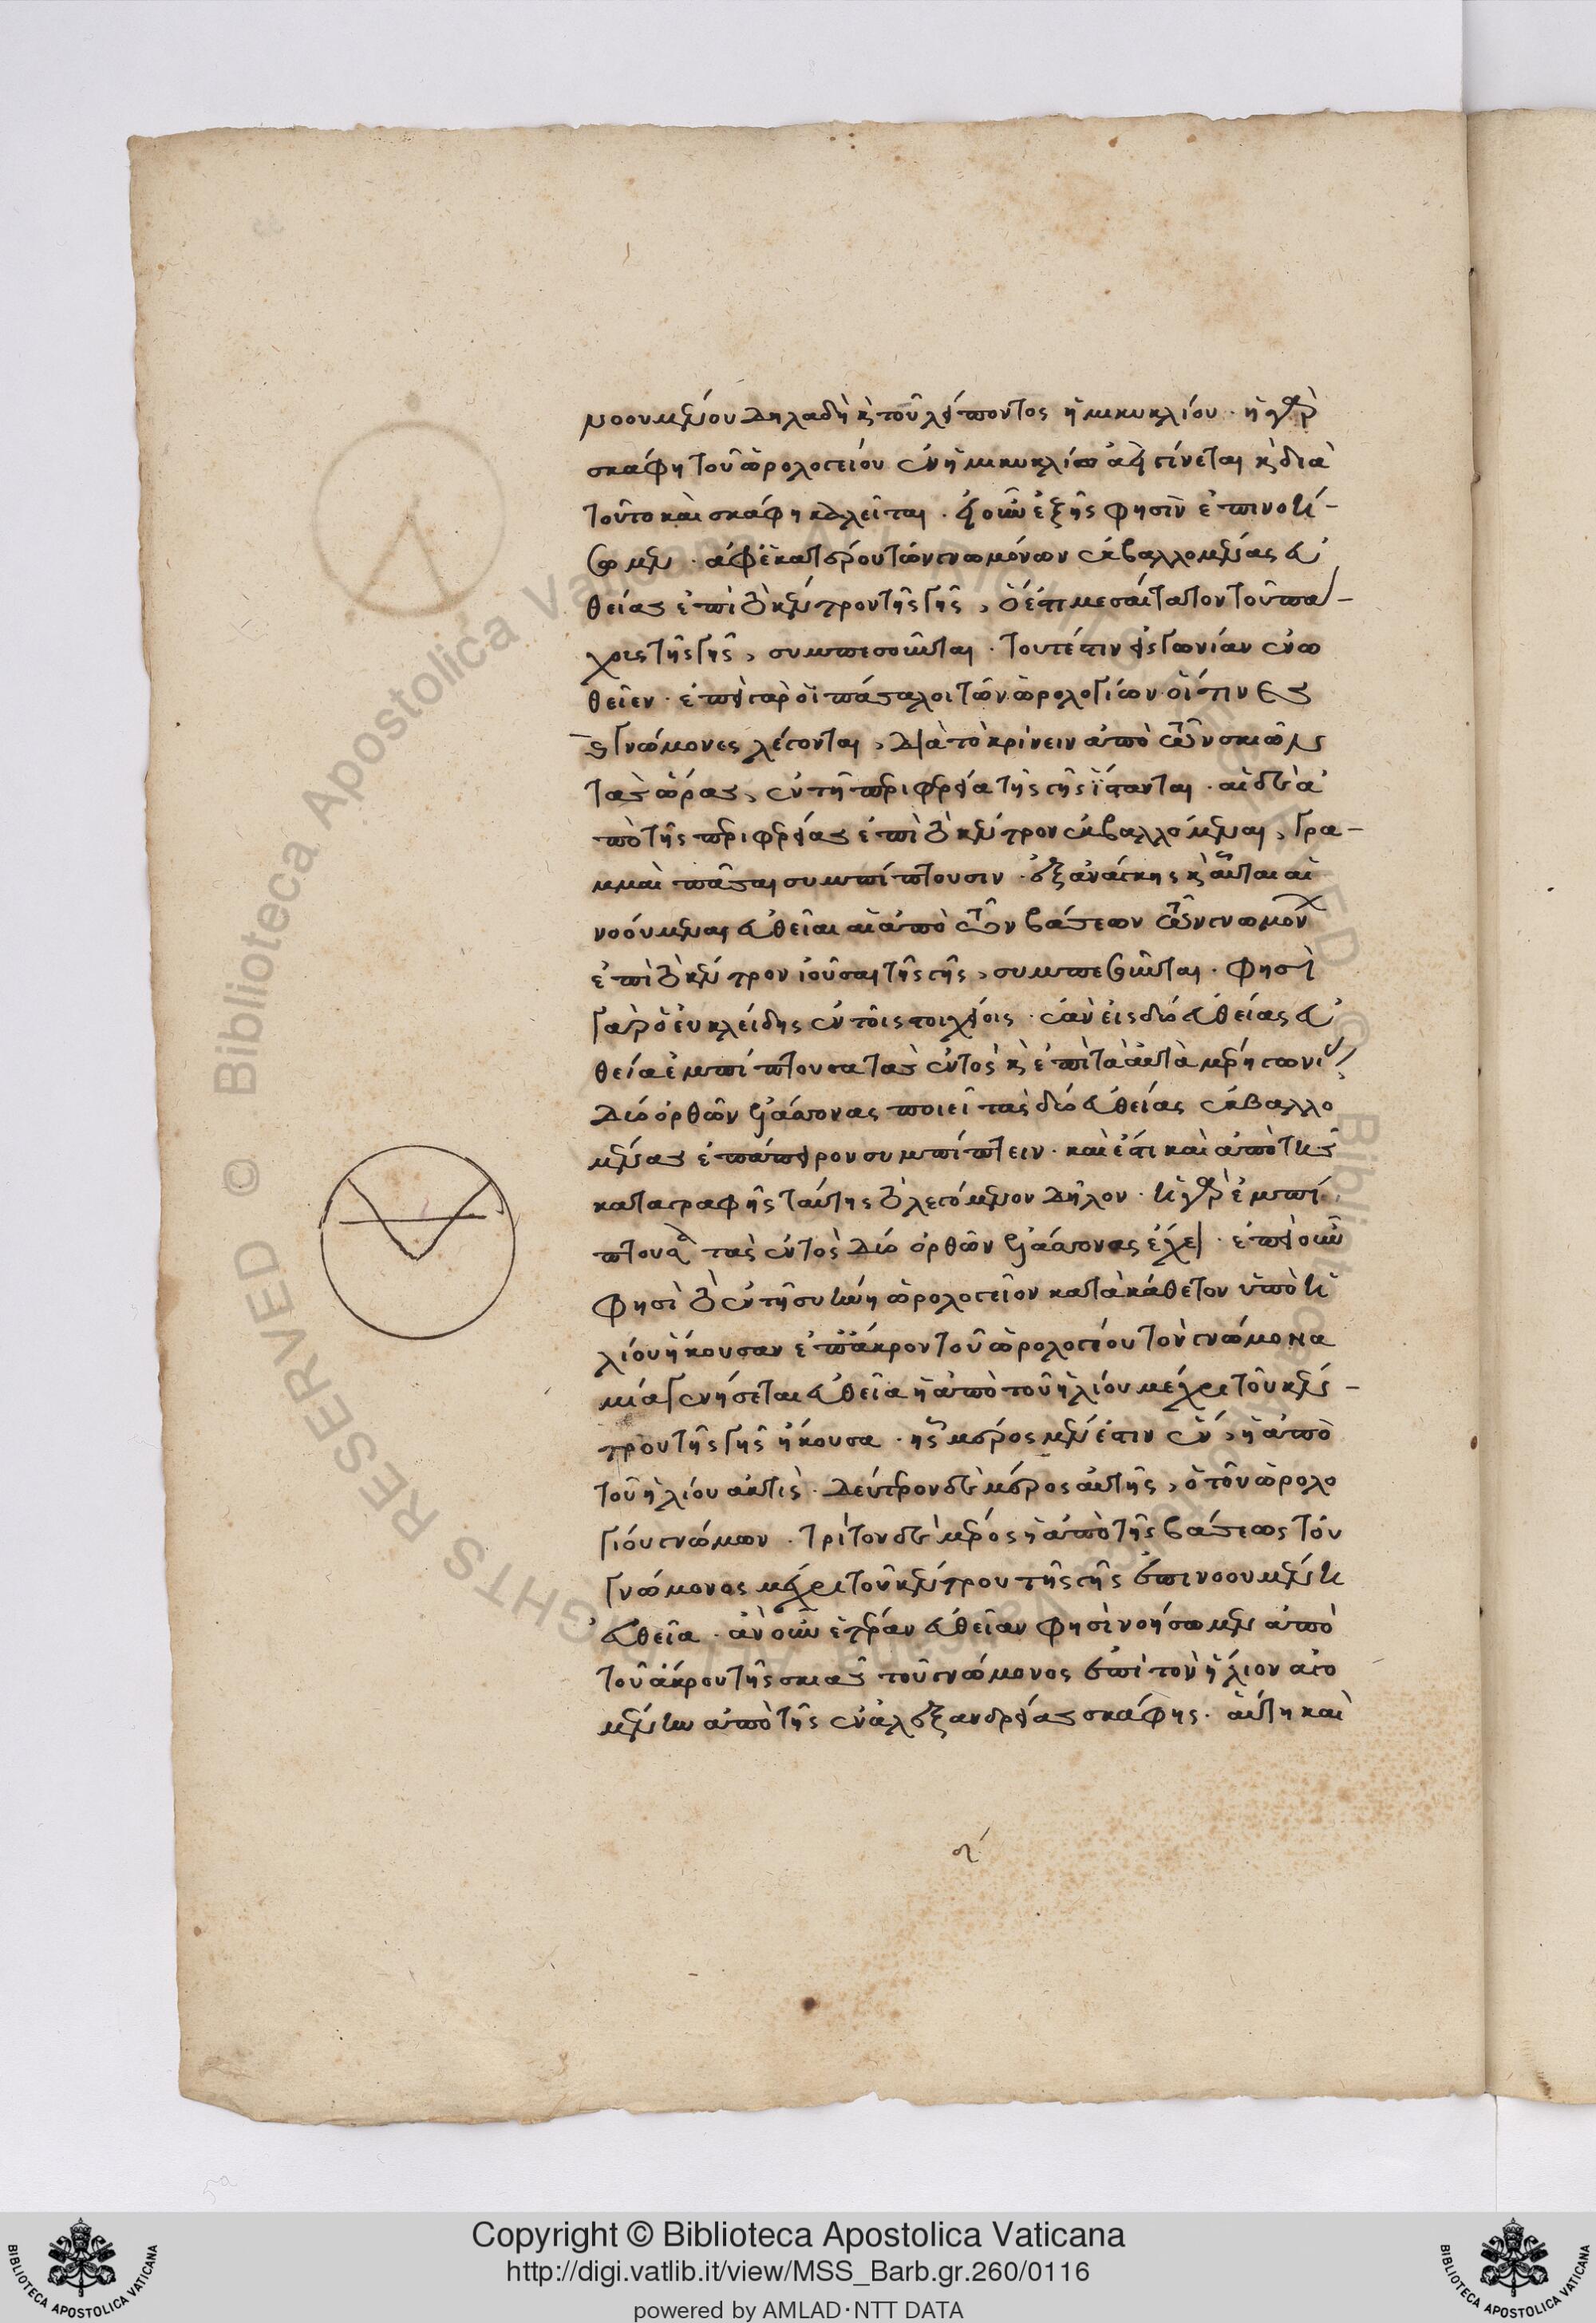 νοουμένου δηλαδὴ κ τοῦ λείποντος ἡμικυκλίου. ἡ γὰρ
σκάφη τοῦ ὡρολογείου ἐν ἡμικυκλίῳ ἀεὶ γίνεται κ διὰ
τοῦτο καὶ σκάφη καλεῖται. εἰ οὖν ἑξῆς φησὶν ἐπινοή-
σωμεν. ἀφ' ἑκατέρου τῶν γνωμόνων ἐκβαλλομένας εὐ
θείας ἐπὶ τὸ κέντρον τῆς γῆς, ὅ ἐστι μεσαίτατον τοῦ πά-
χους τῆς γῆς, συμπεσοῦνται. τουτέστιν εἰς γωνίαν ἑνω
θεῖεν. ἐπεὶ γὰρ οἱ πάσσαλοι τῶν ὡρολογίων οἵτινες
κ γνώμονες λέγονται, διὰ τὸ κρίνειν ἀπὸ τῶν σκιῶν
τὰς ὥρας, ἐν τῇ περιφερείᾳ τῆς γῆς ἵστανται. αἱ δὲ ἀ
πὸ τῆς περιφερείας ἐπὶ τὸ κέντρον ἐκβαλλόμεναι, γρα-
μμαὶ πᾶσαι συμπίπτουσιν. ἐξ ἀνάγκης κ αὗται αἱ
νοούμεναι εὐθεῖαι αἱ ἀπὸ τῶν βάσεων τῶν γνωμόν
ἐπὶ τὸ κέντρον ἰοῦσαι τῆς γῆς, συμπεσοῦνται. φησὶ
γὰρ ὁ εὐκλείδης ἐν τοῖς στοιχείοις. ἐὰν εἰς δύο εὐθείας εὐ
θεῖα ἐμπίπτουσα τὰς ἐντὸς κ ἐπὶ τὰ αὐτὰ μέρη γωνίας
δύο ὀρθῶν ἐλάσσονας ποιεῖ τὰς δύο εὐθείας ἐκβαλλο
μένας ἐπ' ἄπειρον συμπίπτειν. καὶ ἔστι καὶ ἀπὸ τῆς
καταγραφῆς ταύτης τὸ λεγόμενον δῆλον. ἡ γὰρ ἐμπί
πτουσα τὰς ἐντὸς δύο ὀρθῶν ἐλάσσονας ἔχει. ἐπεὶ οὖν
φησὶ τὸ ἐν τῇ συήνῃ ὡρολογεῖον κατὰ κάθετον ὑπὸ ἡ
λίου ἥκουσαν ἐπ' ἄκρον τοῦ ὡρολογείου τὸν γνώμονα
μία γενήσεται εὐθεῖα ἡ ἀπὸ τοῦ ἡλίου μέχρι τοῦ κέν-
τρου τῆς γῆς ἥκουσα. ἧς μέρος μέν ἐστιν ἕν, ἡ ἀπὸ
τοῦ ἡλίου ἀκτίς. δεύτερον δὲ μέρος αὐτῆς, ὁ τοῦ ὡρολο
γίου γνώμων. τρίτον δὲ μέρος ἡ ἀπὸ τῆς βάσεως τοῦ
γνώμονος μέχρι τοῦ κέντρου τῆς γῆς ἐπινοουμένη
εὐθεῖα. ἂν οὖν ἑτέραν εὐθεῖαν φησὶ νοήσωμεν ἀπὸ
τοῦ ἄκρου τῆς σκιᾶς τοῦ γνώμονος ἐπὶ τὸν ἥλιον ἀγο
μένην ἀπὸ τῆς ἐν ἀλεξανδρείᾳ σκάφης. αὕτη καὶ
Copyright © Biblioteca Apostolica Vaticana
http://digi.vatlib.it/view/MSS_Barb.gr.260/0116
powered by AMLAD·NTT DATA